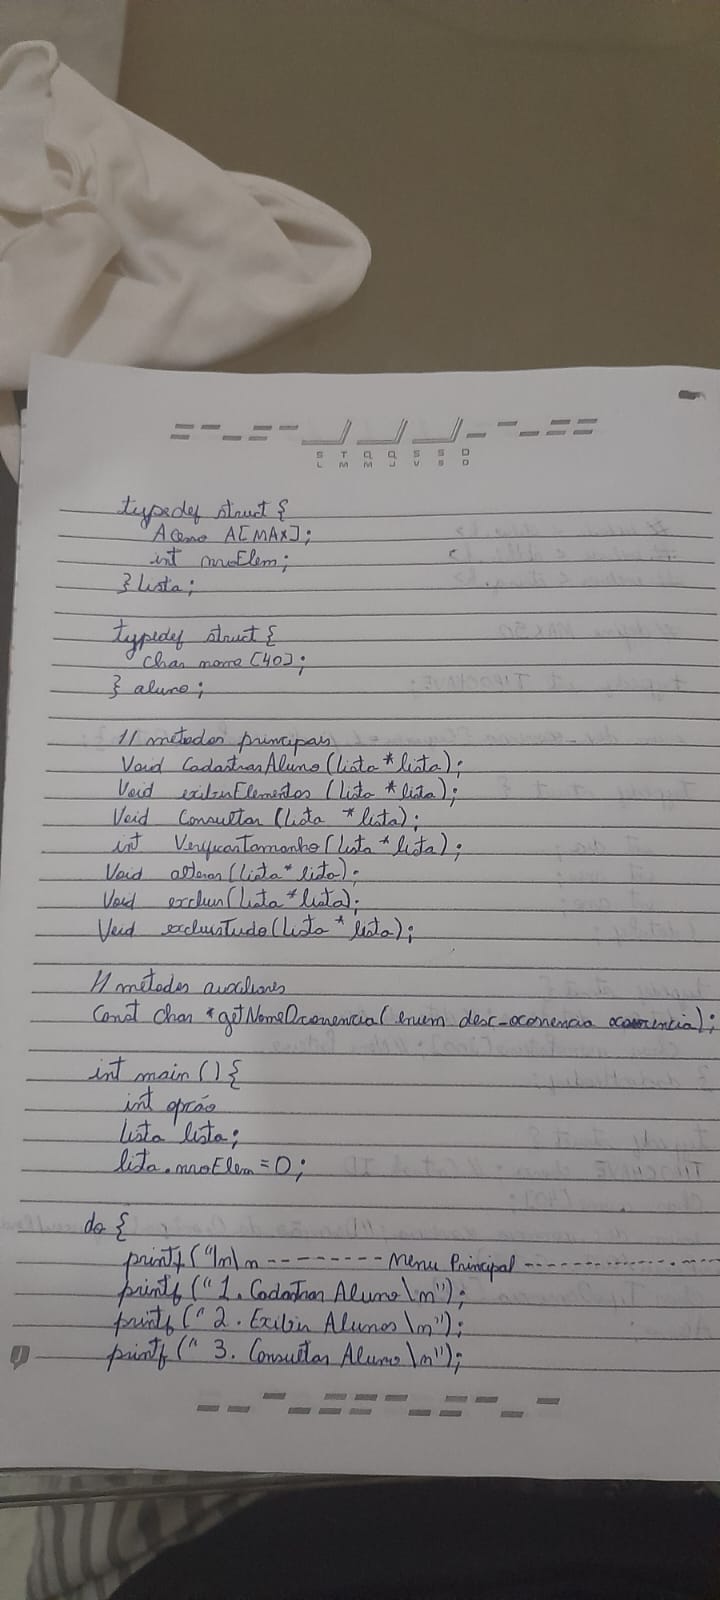 S T Q Q S S D
L M M J V S D
typedef struct {
Aceno A[MAX];
int nroElem;
} lista;
typedef struct {
char nome [40];
} aluno;
// métodos principais
Void CadastrarAluno (lista *lista);
Void exibirElementos (lista *lista);
Void Consultar (lista *lista);
int VerificarTamanho (lista *lista);
Void alterar (lista* lista);
Void excluir (lista* lista);
Void excluirTudo (lista * lista);
// métodos auxiliares
Const char *getNomeOcorrencia( enum desc_ocorrencia ocorrencia);
int main () {
int opção
lista lista;
lista.nroElem = 0;
do {
printf ("\n\n --------- Menu Principal --------------
printf (" 1. Cadastrar Aluno \n");
printf (" 2. Exibir Alunos \n");
printf (" 3. Consultar Aluno \n");